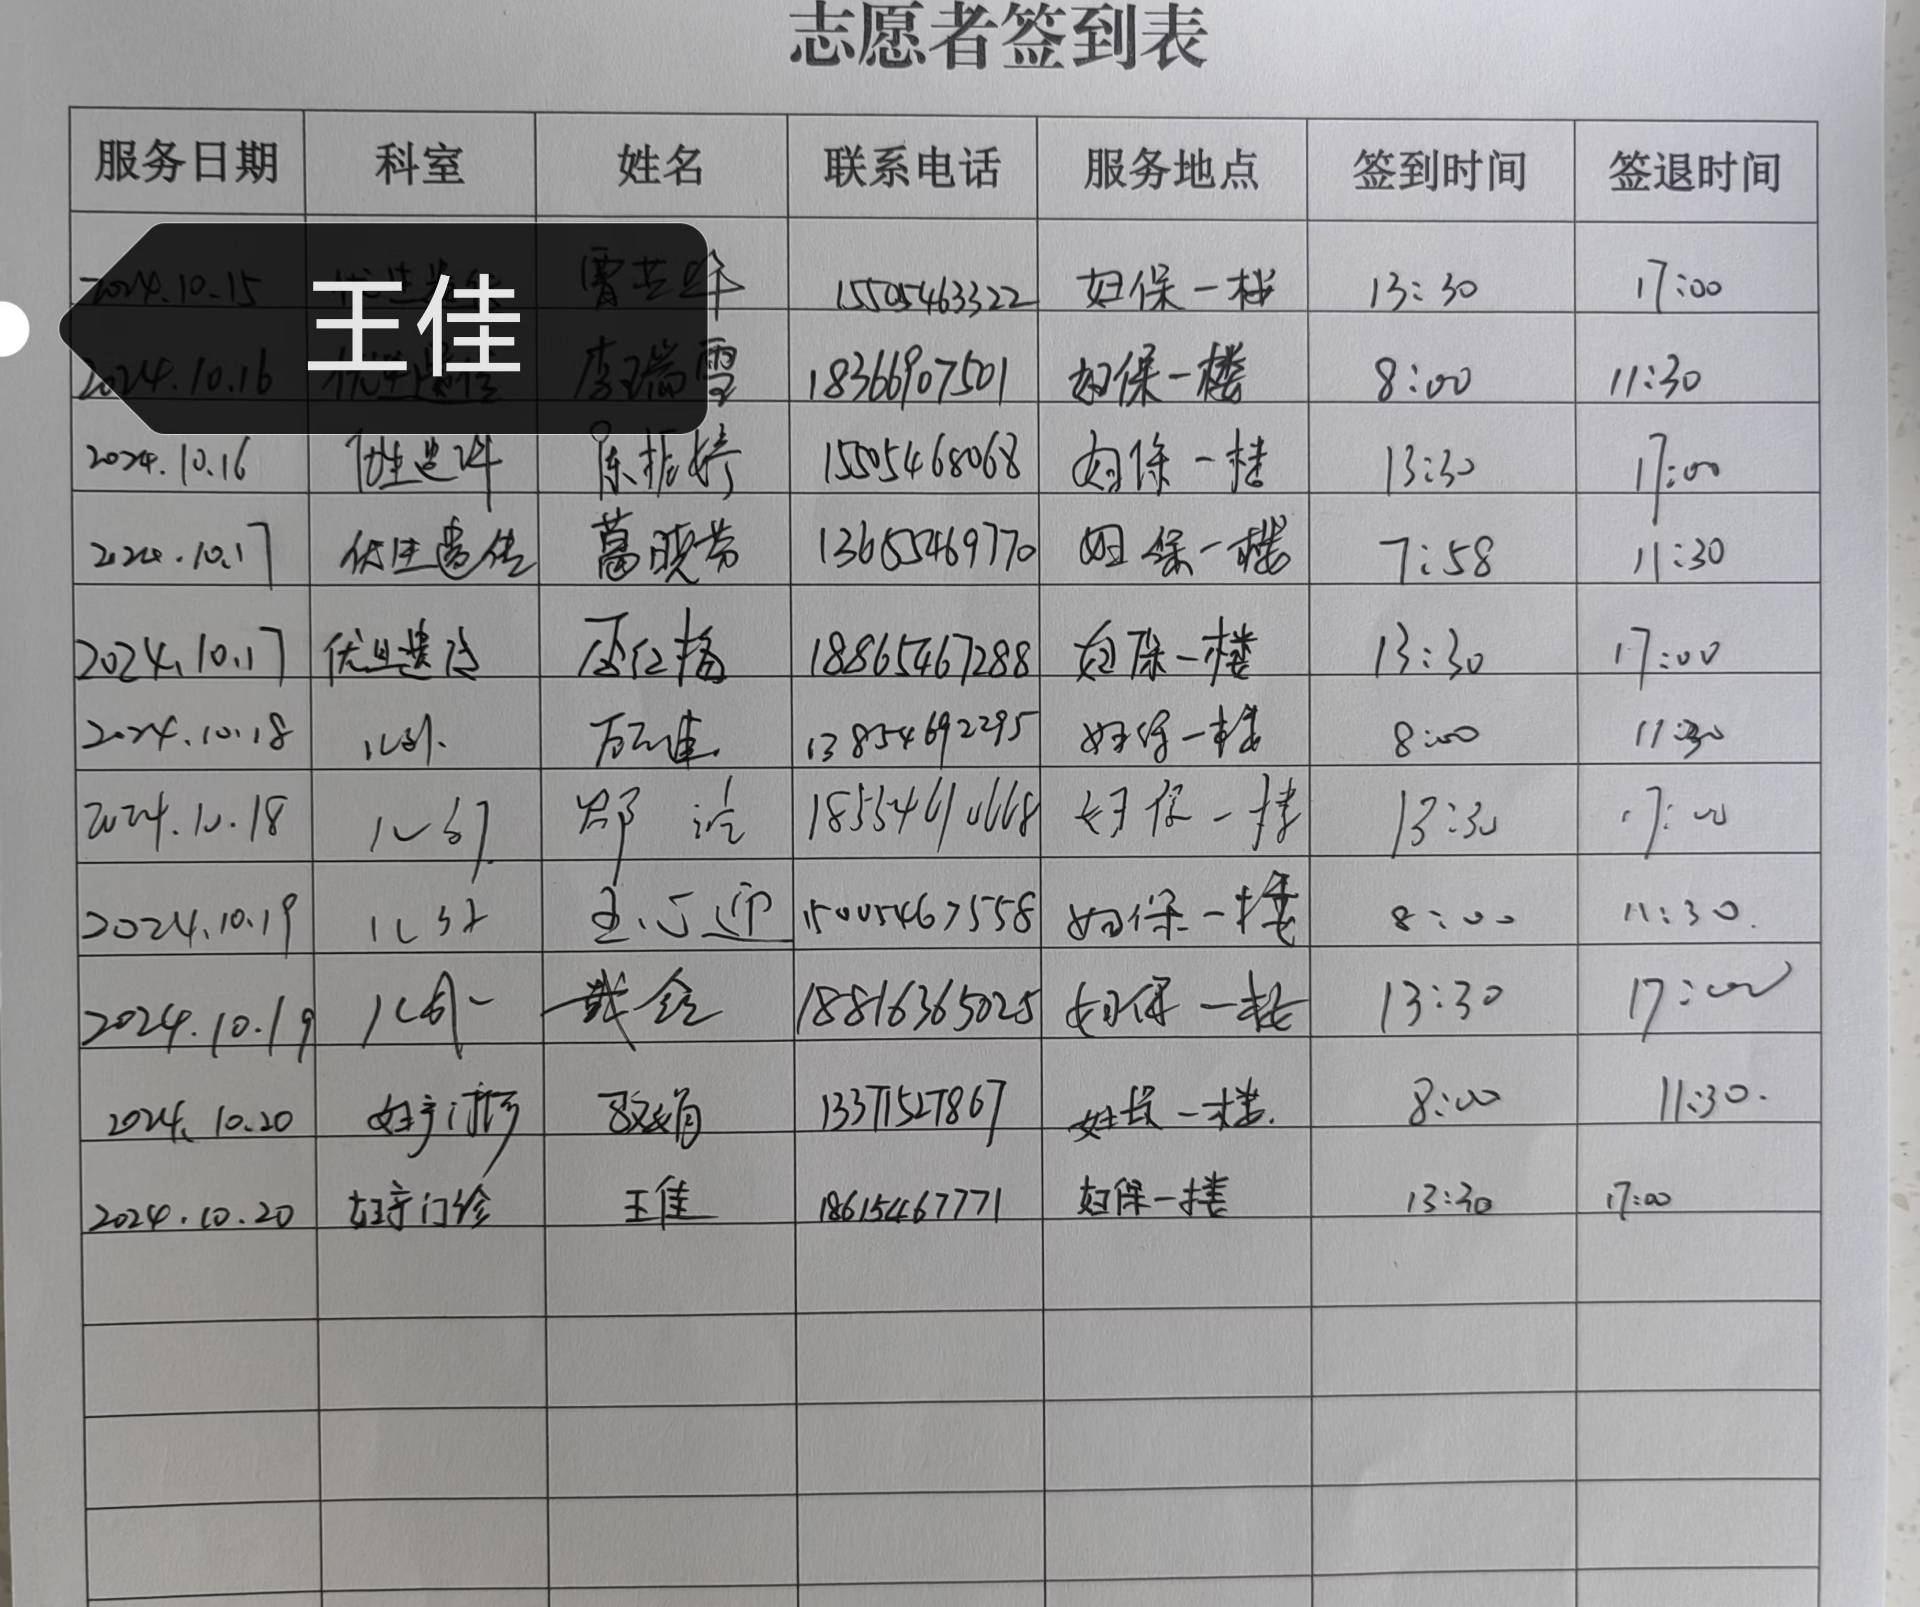 志愿者签到表
服务日期 科室 姓名 联系电话 服务地点 签到时间 签退时间
王佳
2024.10.15 15505463322 妇保一楼 13:30 17:00
2024.10.16 优生遗传 李瑞雪 18366907501 妇保一楼 8:00 11:30
2024.10.16 优生遗传 陈振婷 15505468068 妇保一楼 13:30 17:00
2024.10.17 优生遗传 葛晓芳 13655469770 妇保一楼 7:58 11:30
2024.10.17 优生遗传 18865467288 妇保一楼 13:30 17:00
2024.10.18 儿外 13854692295 妇保一楼 8:00 11:30
2024.10.18 儿外 妇保一楼 13:30 17:00
2024.10.19 儿外 王心迎 15005467558 妇保一楼 8:00 11:30.
2024.10.19 儿外 戴金 18816365025 妇保一楼 13:30 17:00
2024.10.20 妇产门诊 13371527867 妇保一楼. 8:00 11:30.
2024.10.20 妇产门诊 王佳 18615467771 妇保一楼 13:30 17:00